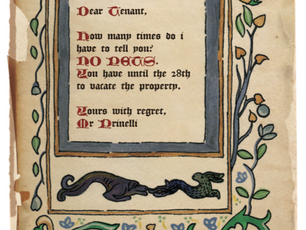 Dear Tenant,
How many times do i
have to tell you?
NO PETS.
You have until the 28th
to vacate the property.
Yours with regret,
Mr Prinelli